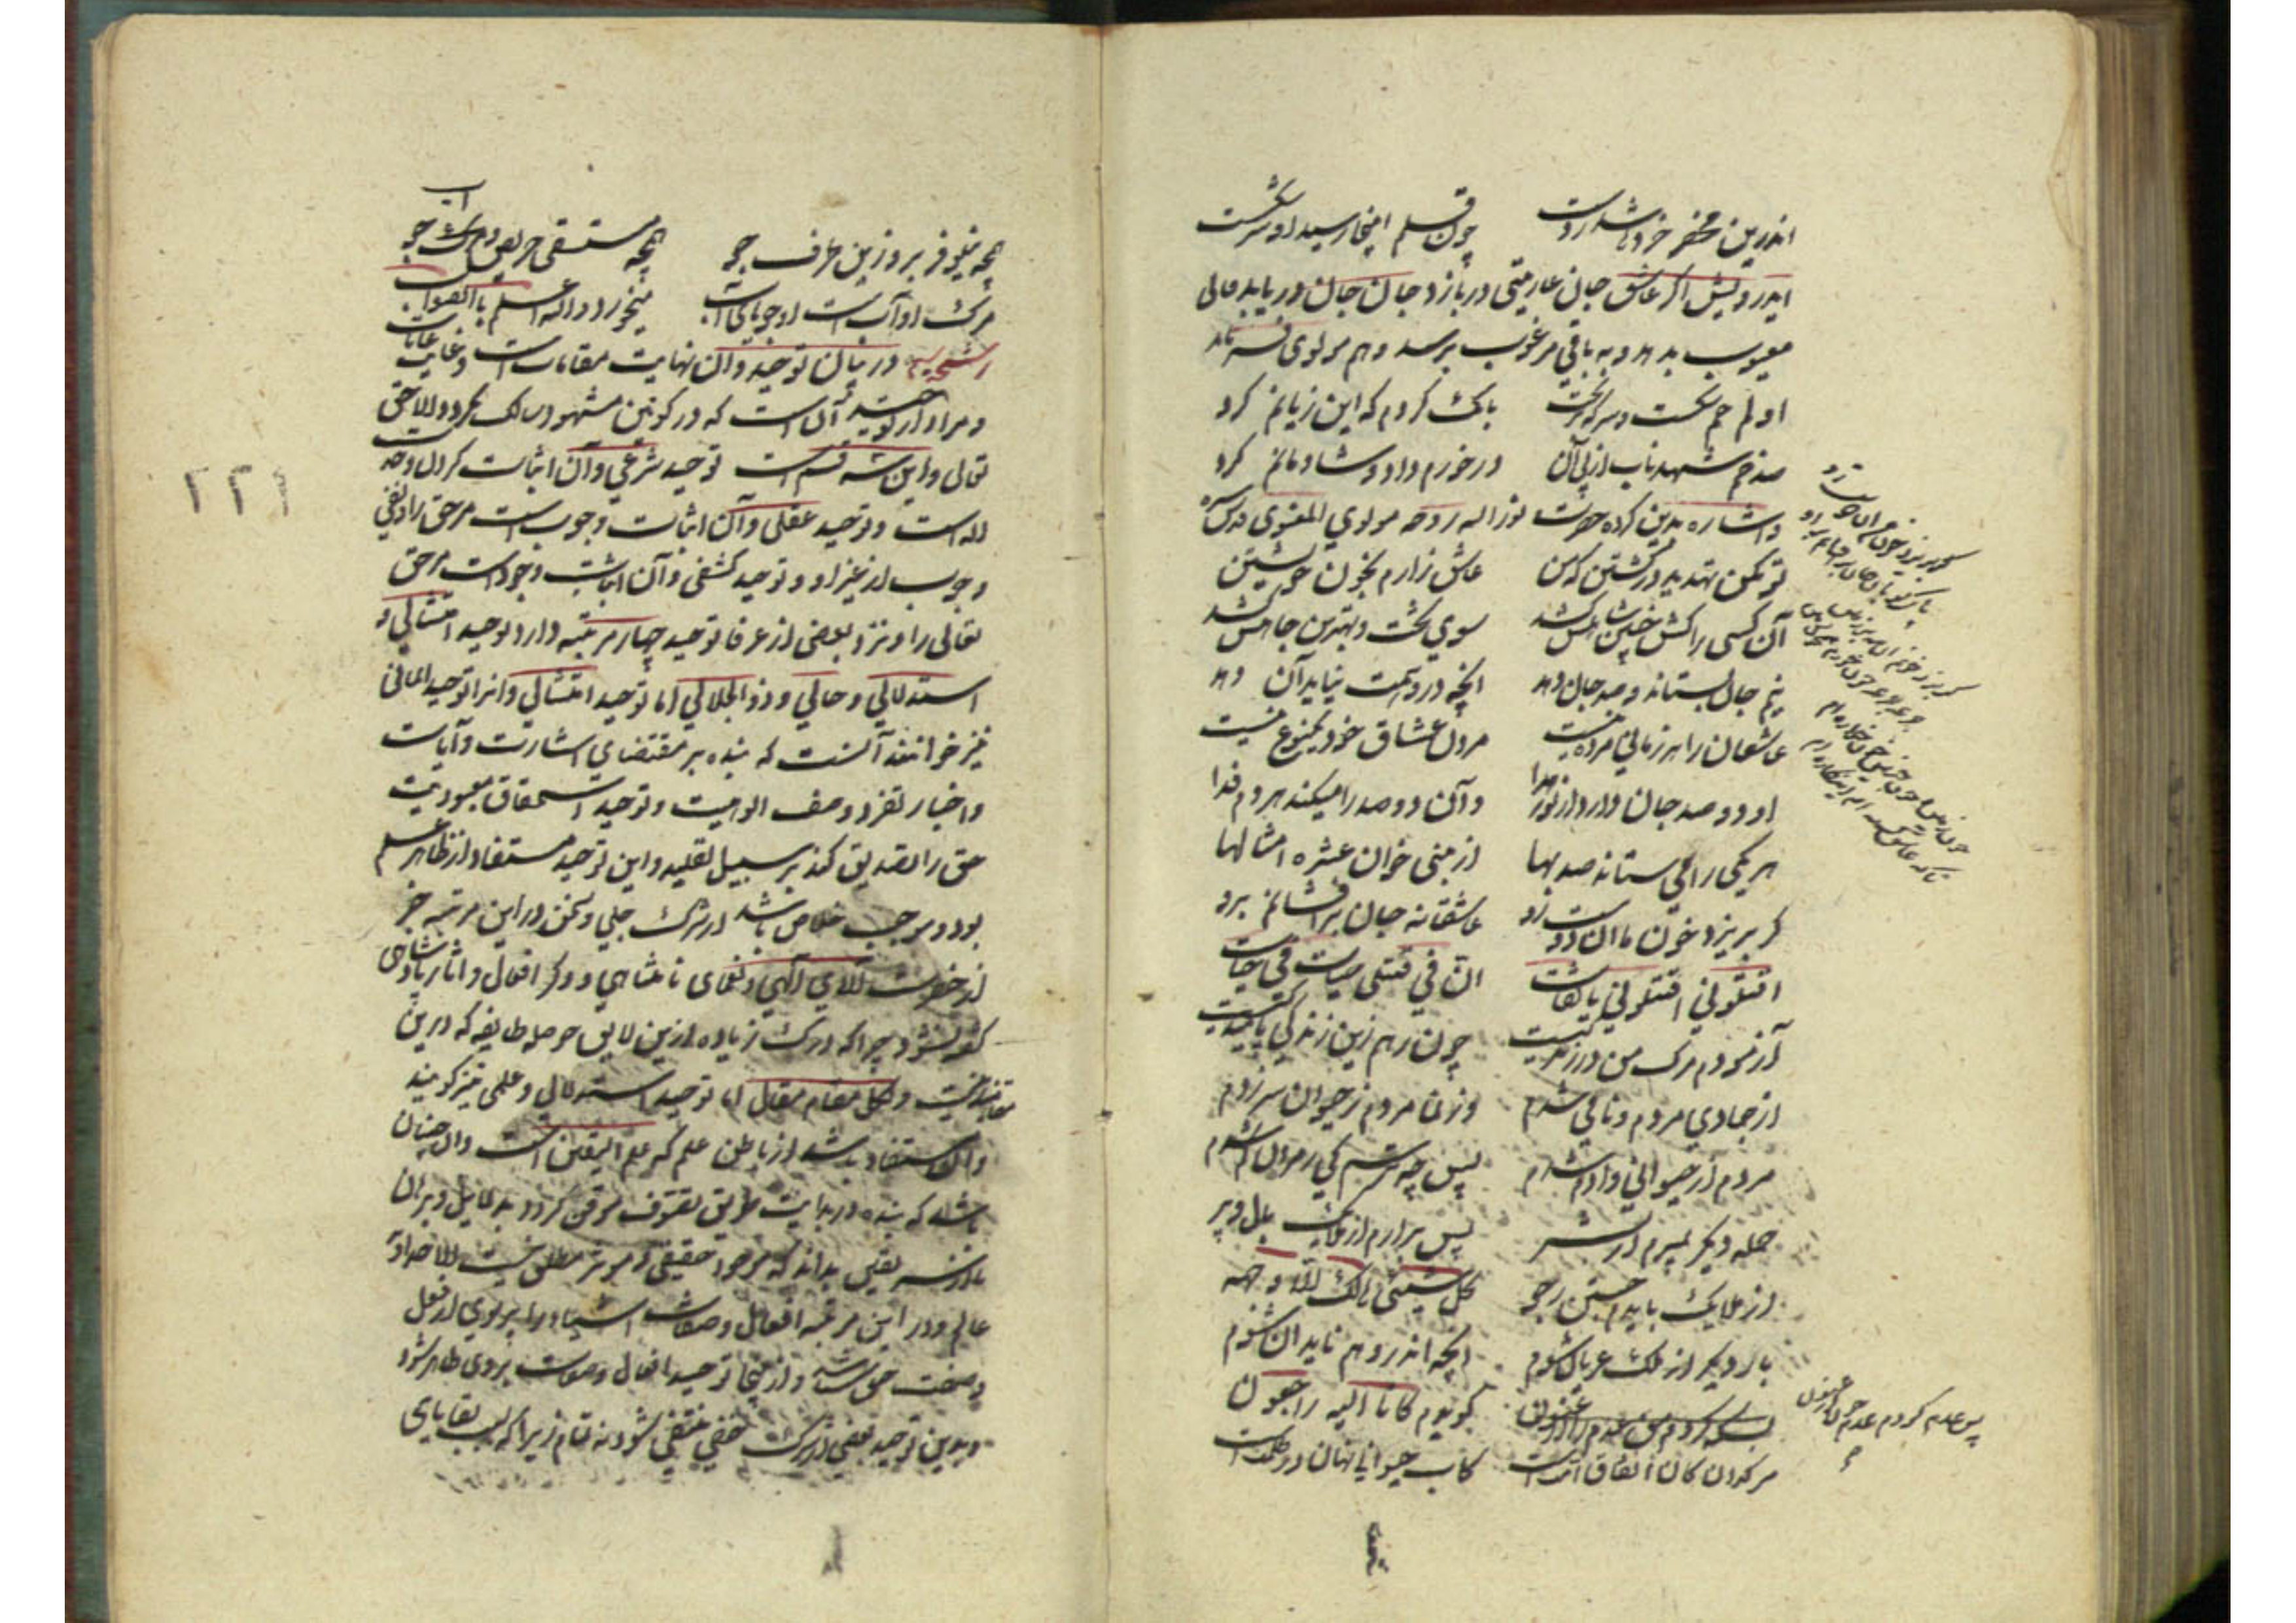 اندرین محضر خردها شد ز دست چون قلم اینجا رسید و سر شکست
ایدرویش اگر عاشق جان عاریتی در بازد جان جان در یابد فانی
معیوب بدهد و به باقی مرغوب برسد وهم مولوی فرماید
او لم خم شکست و سرکه بریخت بانگ کردم که این زیانم کرد
صد خم شهد ناب از پی آن در خورم داد و شادمانم کرد
و اشاره بدین کرده حضرت نورالله روحه مولوی المعنوی قدس سره
تو مکن تهدید در کشتن که من عاشق زارم بخون خویشتن
آن کسی را کش چنین شاهی کشد سوی تخت و بهترین جاهی کشد
نیم جان بستاند و صد جان دهد آنچه در وهمت نیاید آن دهد
عاشقان را هر زمانی مردنیست مردن عشاق خود یکنوع نیست
او دو صد جان دارد از نور هدا و آن دو صد را میکند هر دم فدا
هر یکی را می ستاند صد بها از نبی خوان عشره امثالها
گر بریزد خون ما آن دوست رو عاشقانه جان برافشانم برو
اقتلونی اقتلونی یا ثقات ان فی قتلی حیات فی حیات
آزمودم مرگ من در زندگیست چون رهم زین زندگی پایندگیست
از جمادی مردم و نامی شدم وز نما مردم ز حیوان سر زدم
مردم از حیوانی و آدم شدم پس چه ترسم کی ز مردن کم شدم
حمله دیگر بمیرم از بشر پس برارم از ملایک بال و پر
از ملایک بایدم جستن ز جو کل شیئ هالک الا وجهه
بار دیگر از ملک قربان شوم آنچه اندر وهم ناید آن شوم
گویدم کانا الیه راجعون
مرگ دان کان اتفاق امتست کاب حیوانی نهان در ظلمتست
گر بریزد خون من آن دوست رو
پس عدم گردم عدم چون ارغنون
همچو نیلوفر برو زین طرف جو همچو مستسقی حریص و مرگ جو
مرگ او آبست او جویای آب میخورد والله اعلم بالصواب
در بیان توحید و آن نهایت مقامات است و غایت غایات
و مراد از توحید آن است که در کونین مشهود سالک نگردد الا حق
تعالی و این سه قسم است توحید شرعی و آن اثبات کردن وحدت
اله است و توحید عقلی و آن اثبات وجوب است مر حق را و نفی
وجوب از غیر او و توحید کشفی و آن اثبات وجود است مر حق
تعالی را و نزد بعضی از عرفا توحید چهار مرتبه دارد توحید امتثالی و
استدلالی و حالی و ذو الجلالی اما توحید امتثالی و آنرا توحید ایمانی
نیز خوانند آنست که بنده بر مقتضای اشارت و آیات
و اخبار تفرد وصف الوهیت و توحید استحقاق معبودیت
حق را تصدیق کند بر سبیل تقلید و این توحید مستفاد از ظاهر علم
بود و موجب خلاص باشد از شرک جلی و سخن در این مرتبه جز
از حضرت آلای الهی و نعمای نامتناهی و ذکر افعال و آثار پادشاهی
گفته نشود چرا که درک زیاده ازین لایق حوصله طایفه که درین
مقامند نیست و لکل مقام مقال اما توحید استدلالی و علمی نیز گویند
و آن مستفاد باشد از باطن علم که علم الیقین است و آن چنان
باشد که بنده در بدایت طریق تصوف موقن گردد به دلایل و برهان
یقین بداند که موجود حقیقی و موثر مطلق نیست الا خداوند
عالم و در این مرتبه افعال و صفات اشیا را پرتوی از فعل
و صفت حق و از اینجا توحید افعال و صفات بر وی ظاهر شود
و بدین توحید بعضی از شرک خفی منتفی شود نه تمام زیرا که بسبب بقایای
۲۲۹